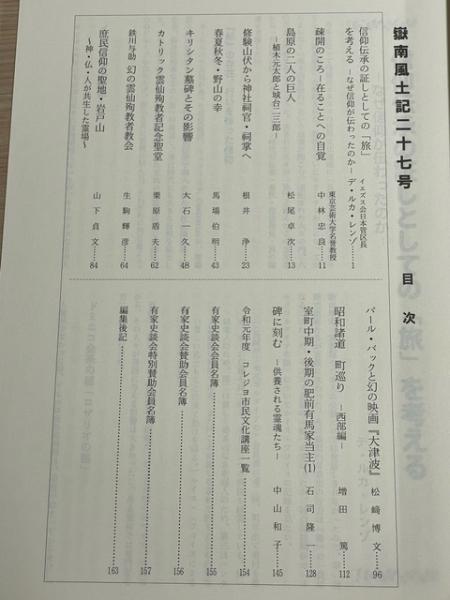 嶽南風土記二十七号
目次
信仰伝承の証しとしての「旅」
を考える －なぜ信仰が伝わったのか－
イエズス会日本管区長
デ・ルカ・レンゾ……1
疎開のころ－在ごとへの自覚
東京芸術大学名誉教授
中林忠良……11
島原の二人の巨人
－植木元太郎と城台二三郎－
松尾卓次……13
修験山伏から神社祠官・祠掌へ
根井浄……23
春夏秋冬・野山の幸
馬場伯明……43
キリシタン墓碑とその影響
大石一久……48
カトリック雲仙殉教者記念聖堂
栗原盾夫……62
鉄川与助 幻の雲仙殉教者教会
生駒輝彦……64
庶民信仰の聖地・岩戸山
～神・仏・人が共生した霊場～
山下貞文……84
パール・バックと幻の映画『大津波』
松﨑博文……96
昭和諸道 町巡り －西部編－
増田篤……112
室町中期・後期の肥前有馬家当主(1)
石司隆一……128
碑に刻む －供養される霊魂たち－
中山和子……145
令和元年度 コレジヨ市民文化講座一覧……154
有家史談会会員名簿……155
有家史談会賛助会員名簿……156
有家史談会特別賛助会員名簿……157
編集後記……163